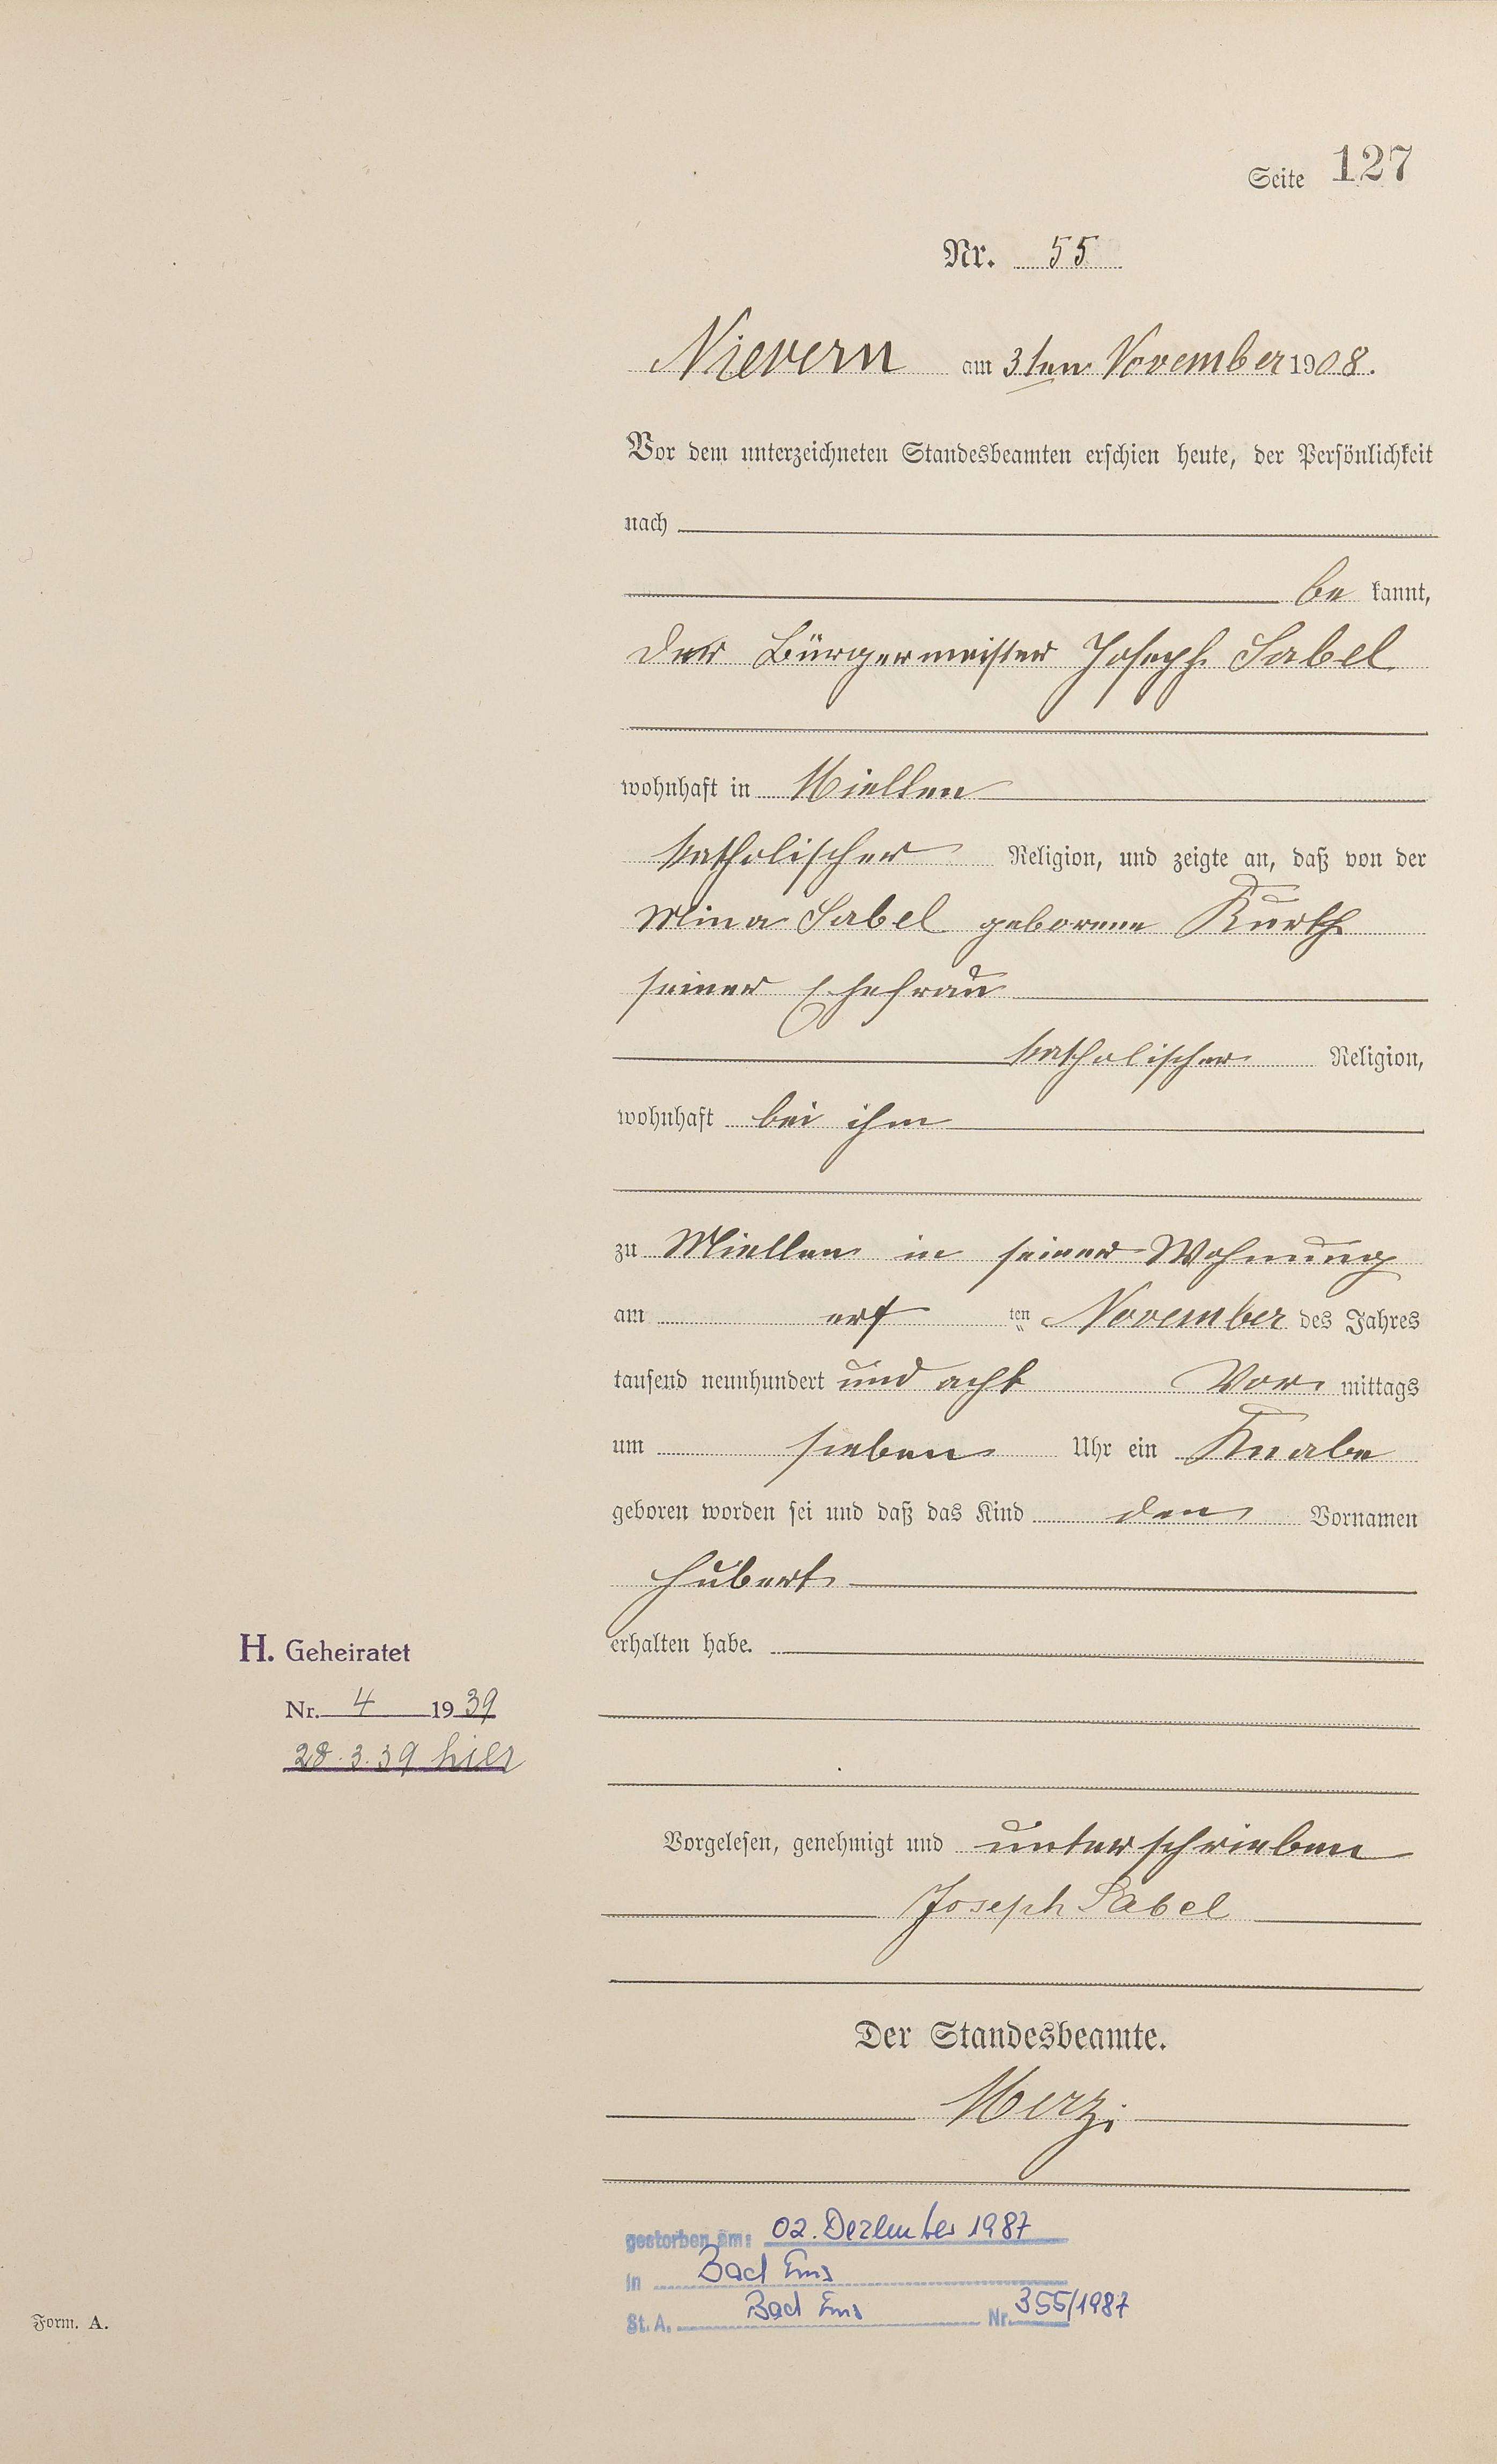 Seite 127
Nr. 55
Nievern am 3ten November 1908.
Vor dem unterzeichneten Standesbeamten erschien heute, der Persönlichkeit
nach
be kannt,
der Bürgermeister Joseph Sabel
wohnhaft in Miellen
katholischer Religion, und zeigte an, daß von der
Mina Sabel geborene Kurth
seiner Ehefrau
katholischer Religion,
wohnhaft bei ihm
zu Miellen in seiner Wohnung
am ten November des Jahres
tausend neunhundert und acht Vor mittags
um sieben Uhr ein Knabe
geboren worden sei und daß das Kind den Vornamen
Hubert
erhalten habe.
H. Geheiratet
Nr. 4 1939
28.3.39 hier
Vorgelesen, genehmigt und unterschrieben
Joseph Sabel
Der Standesbeamte.
Merz
gestorben am: 02. Dezember 1987
in Bad Ems
St. A. Bad Ems Nr. 355/1987
Form. A.